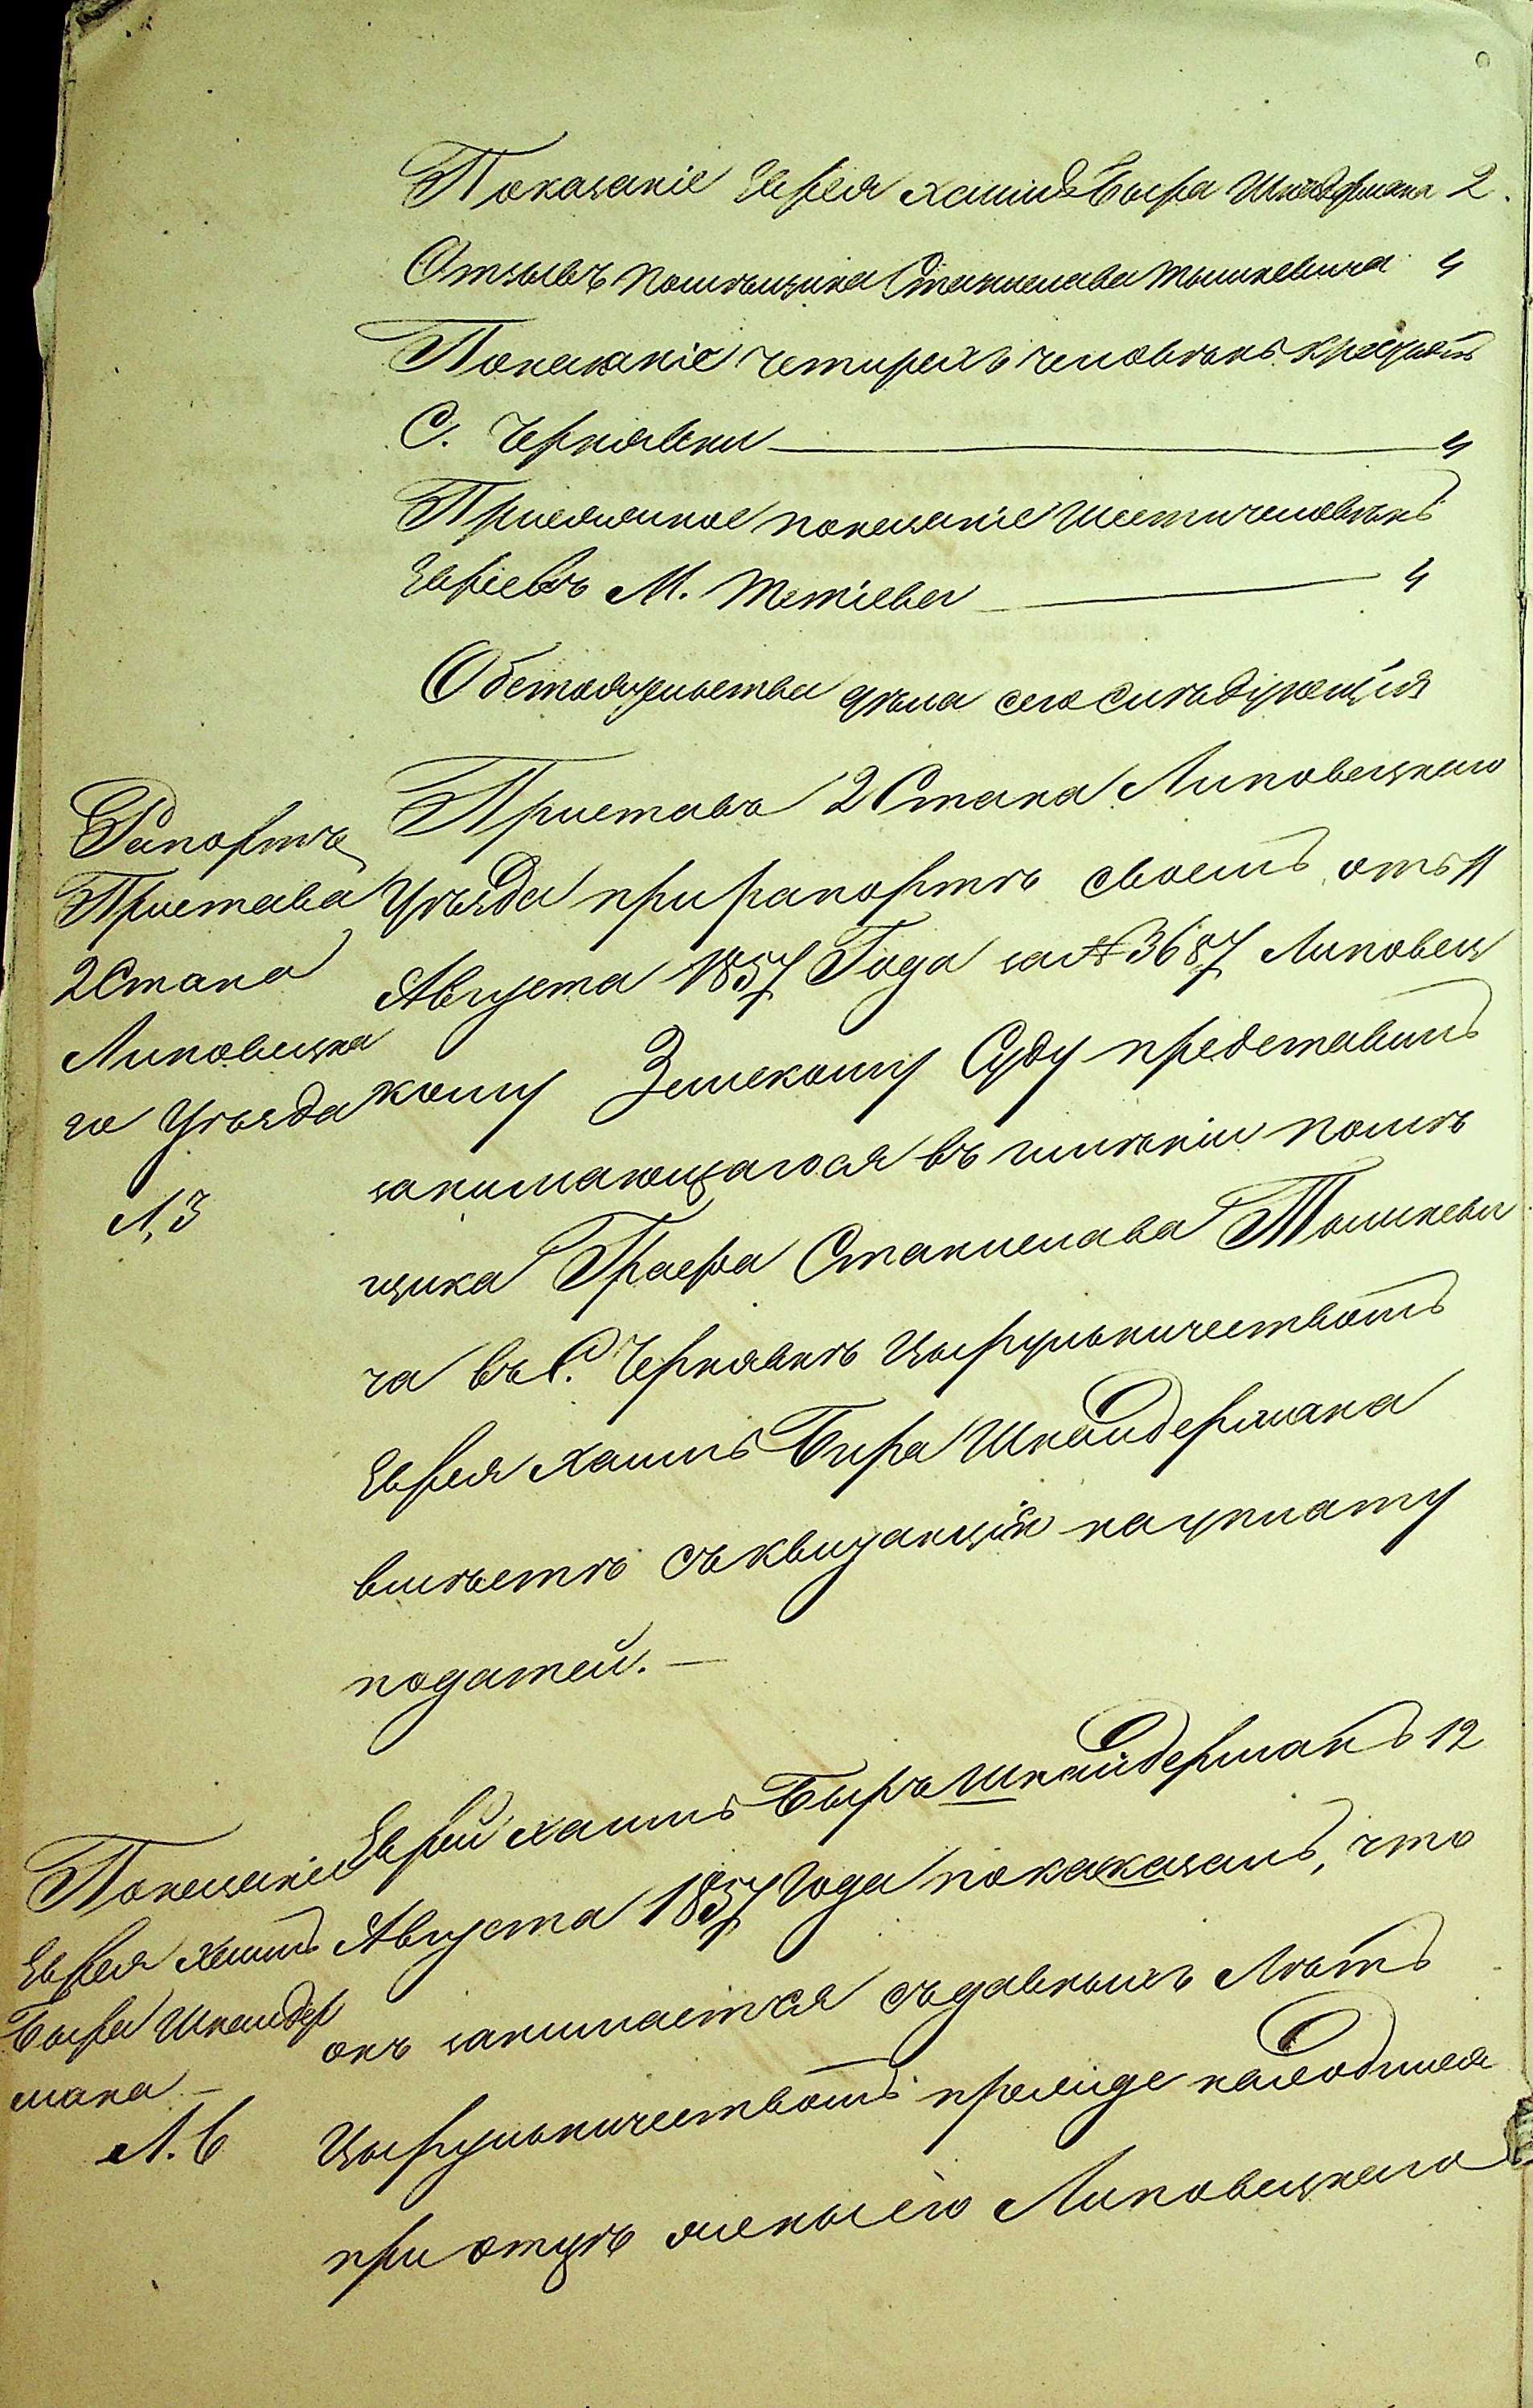 Показаніе Еврея Хаимъ Быра Шнайдермана 2.
Отзывъ помѣщика Станислава Тышкевича 4
Показаніе четирехъ человѣкъ крестьянъ
С. Чернявки — 4
Присяжное показаніе шести человѣкъ
Евреевъ М. Тетіева — 4
Обстоятельства дѣла сего слѣдующія
Рапортъ
Пристава
2 Стана
Липовецка
го Уѣзда
Л, 3
Приставъ 2 Стана Липовецкаго
Уѣзда при рапортѣ своемъ отъ 11
Августа 1857 Года за № 3687 Липовец
кому Земскому Суду представилъ
занимающагося въ имѣніи помѣ
щика Графа Станислава Тышкеви
ча въ С. Чернявкѣ Цырульничествомъ
Еврея Хаимъ Бира Шнайдермана
вмѣстѣ съ квизанціи на уплату
податей. —
Показаніе
Еврея Хаимъ
Быра Шнайдер
мана —
Л. 6
Еврей Хаимъ Быръ Шнайдерманъ 12
Августа 1857 Года покаказалъ, что
онъ занимается съ давныхъ Лѣтъ
Цырульничествомъ прежде находился
при отцѣ жены его Липовецкаго